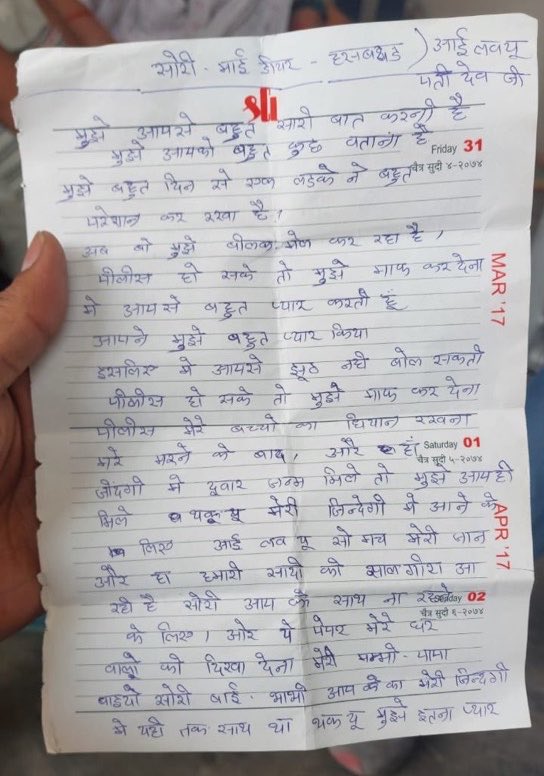 सोरी. माई डीयर - हसबेण्ड ) आई लव यू
पती देव जी
मुझे आपसे बहुत सारी बात करनी है
मुझे आपको बहुत कुछ बताना है
Friday 31
चैत्र सुदी ४-२०७४
मुझे बहुत दिन से एक लड़के ने बहुत
परेशान कर रखा है,
अब वो मुझे बीलक मेल कर रहा है,
MAR '17
पीलीस हो सके तो मुझे माफ कर देना
मे आपसे बहुत प्यार करती हूँ
आपने मुझे बहुत प्यार किया
इसलिए मे आपसे झूठ नही बोल सकती
पीलीस हो सके तो मुझे माफ कर देना
पीलीस मेरे बच्चो का धियान रखना
Saturday 01
चैत्र सुदी ५-२०७४
मेरे मरने के बाद, और हाँ
जीदगी मे दूवार जन्म मिले तो मुझे आप ही
मिले थेकू यू मेरी जिन्देगी मे आने के
APR '17
लिए आई लव यू सो मच मेरी जान
और हा हमारी सादी की सालगीरा आ
रही है सोरी आप के साथ ना रहने
02
चैत्र सुदी ६-२०७४
के लिए, ओर ये पेपर मेरे घर
वालो को दिखा देना मेरी मम्मी. पापा
भाइयो सोरी भाई. भाभी आप का मेरी जिन्देगी
मे यही तक साथ था थेक यू मुझे इतना प्यार